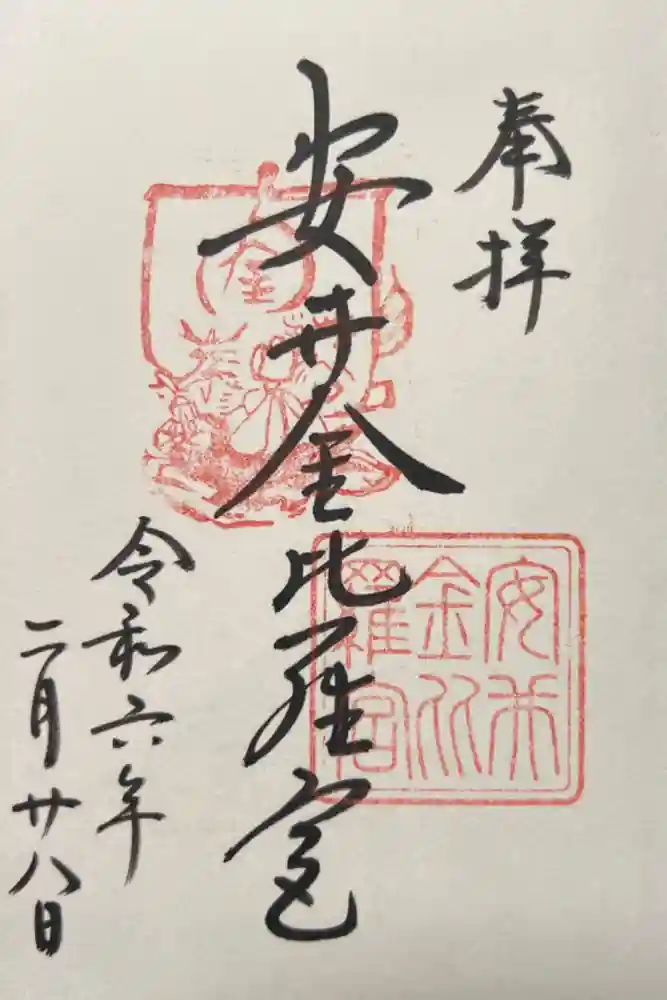 奉拝
安井金比羅宮
金
安井
金比
羅宮
令和六年
二月廿八日